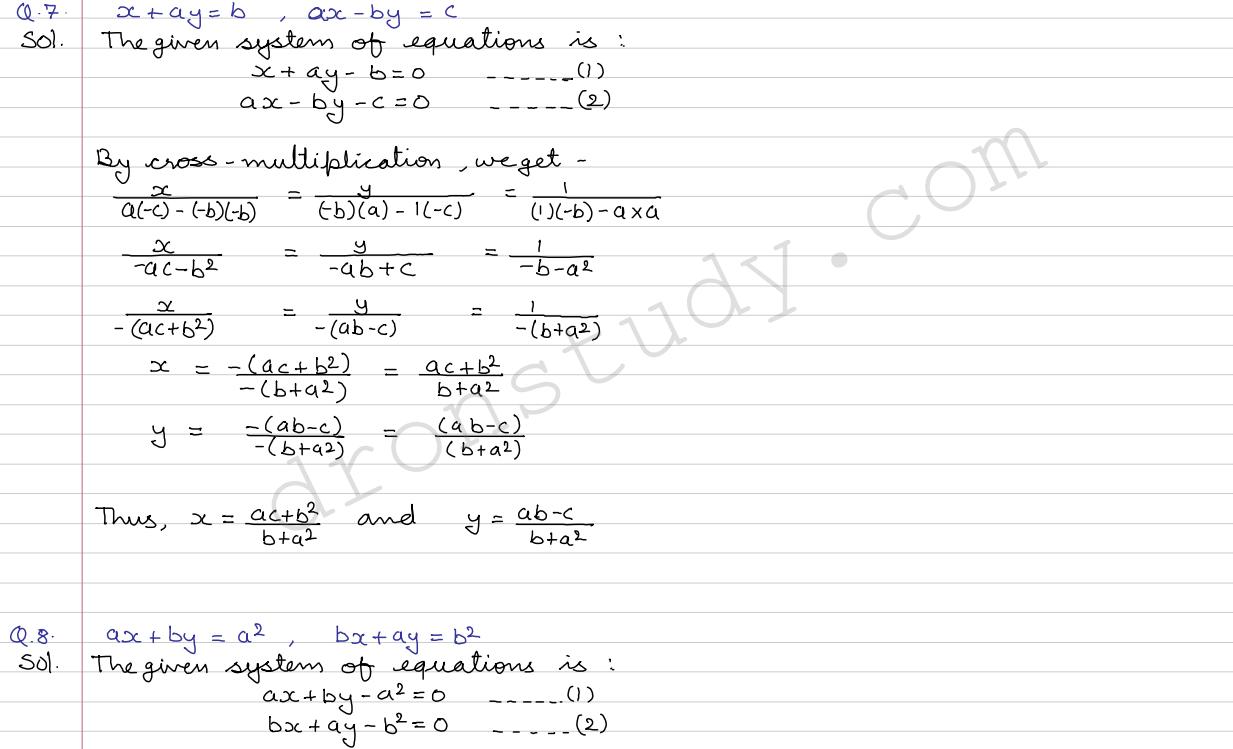 Q.7. x + ay = b , ax - by = c
Sol. The given system of equations is :
x + ay - b = 0 ------(1)
ax - by - c = 0 -----(2)
By cross-multiplication, we get -
x/(a(-c) - (-b)(-b)) = y/((-b)(a) - 1(-c)) = 1/((1)(-b) - a×a)
x/(-ac-b²) = y/(-ab+c) = 1/(-b-a²)
x/(-(ac+b²)) = y/(-(ab-c)) = 1/(-(b+a²))
x = -(ac+b²)/-(b+a²) = (ac+b²)/(b+a²)
y = -(ab-c)/-(b+a²) = (ab-c)/(b+a²)
Thus, x = (ac+b²)/(b+a²) and y = (ab-c)/(b+a²)
Q.8. ax + by = a² , bx + ay = b²
Sol. The given system of equations is :
ax + by - a² = 0 ------(1)
bx + ay - b² = 0 -----(2)
dronstudy.com